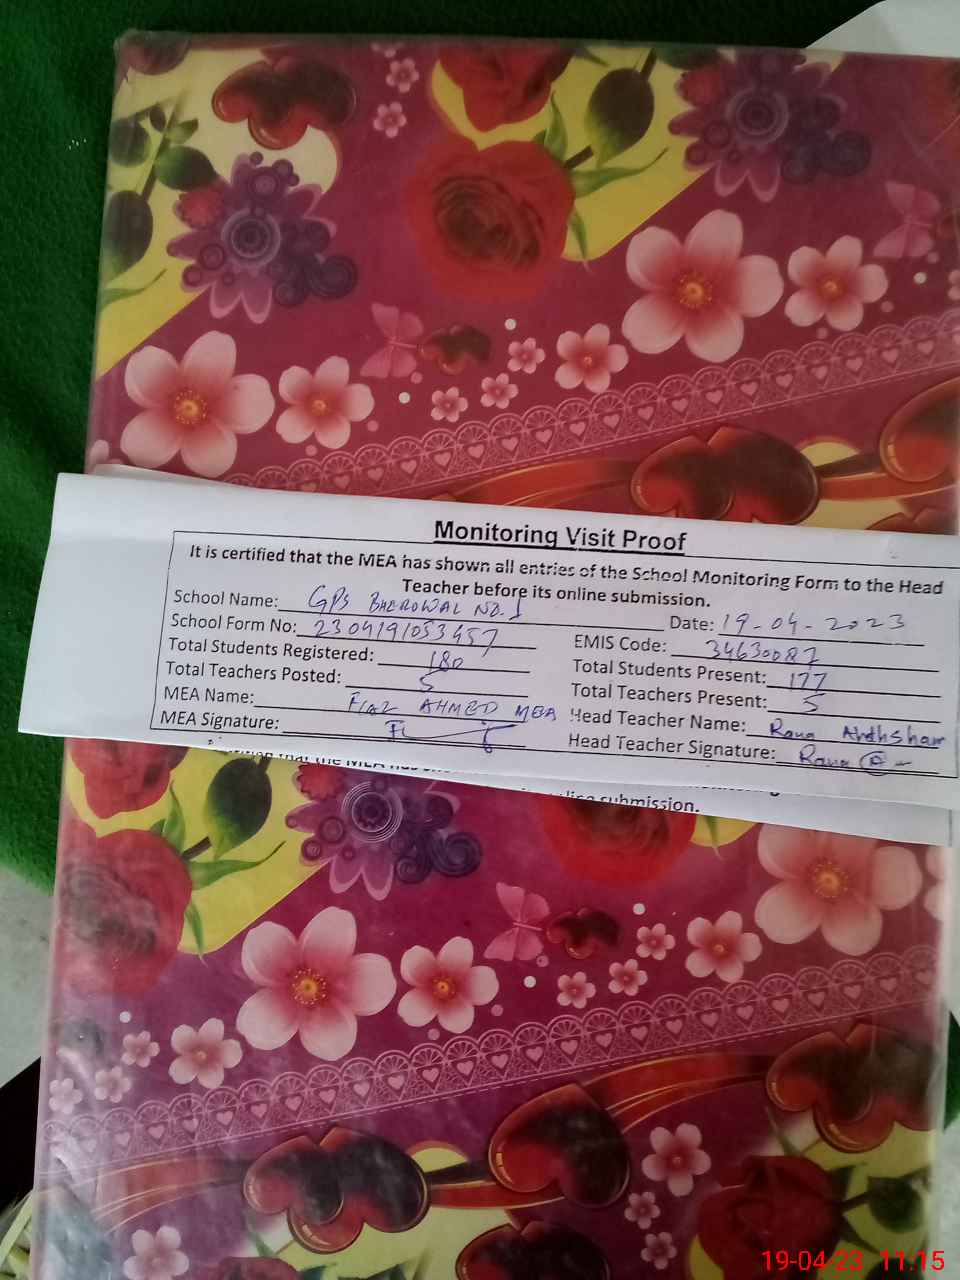 Monitoring Visit Proof
It is certified that the MEA has shown all entries of the School Monitoring Form to the Head
Teacher before its online submission.
School Name: GPS BHEROWAL NO. 1 Date: 19-04-2023
School Form No: 2304191053457 EMIS Code: 34630087
Total Students Registered: 180 Total Students Present: 177
Total Teachers Posted: 5 Total Teachers Present: 5
MEA Name: FIAZ AHMED MEA Head Teacher Name: Rana Ahthsham
MEA Signature: Head Teacher Signature: Rana
that the MEA has
submission.
19-04-23 11:15